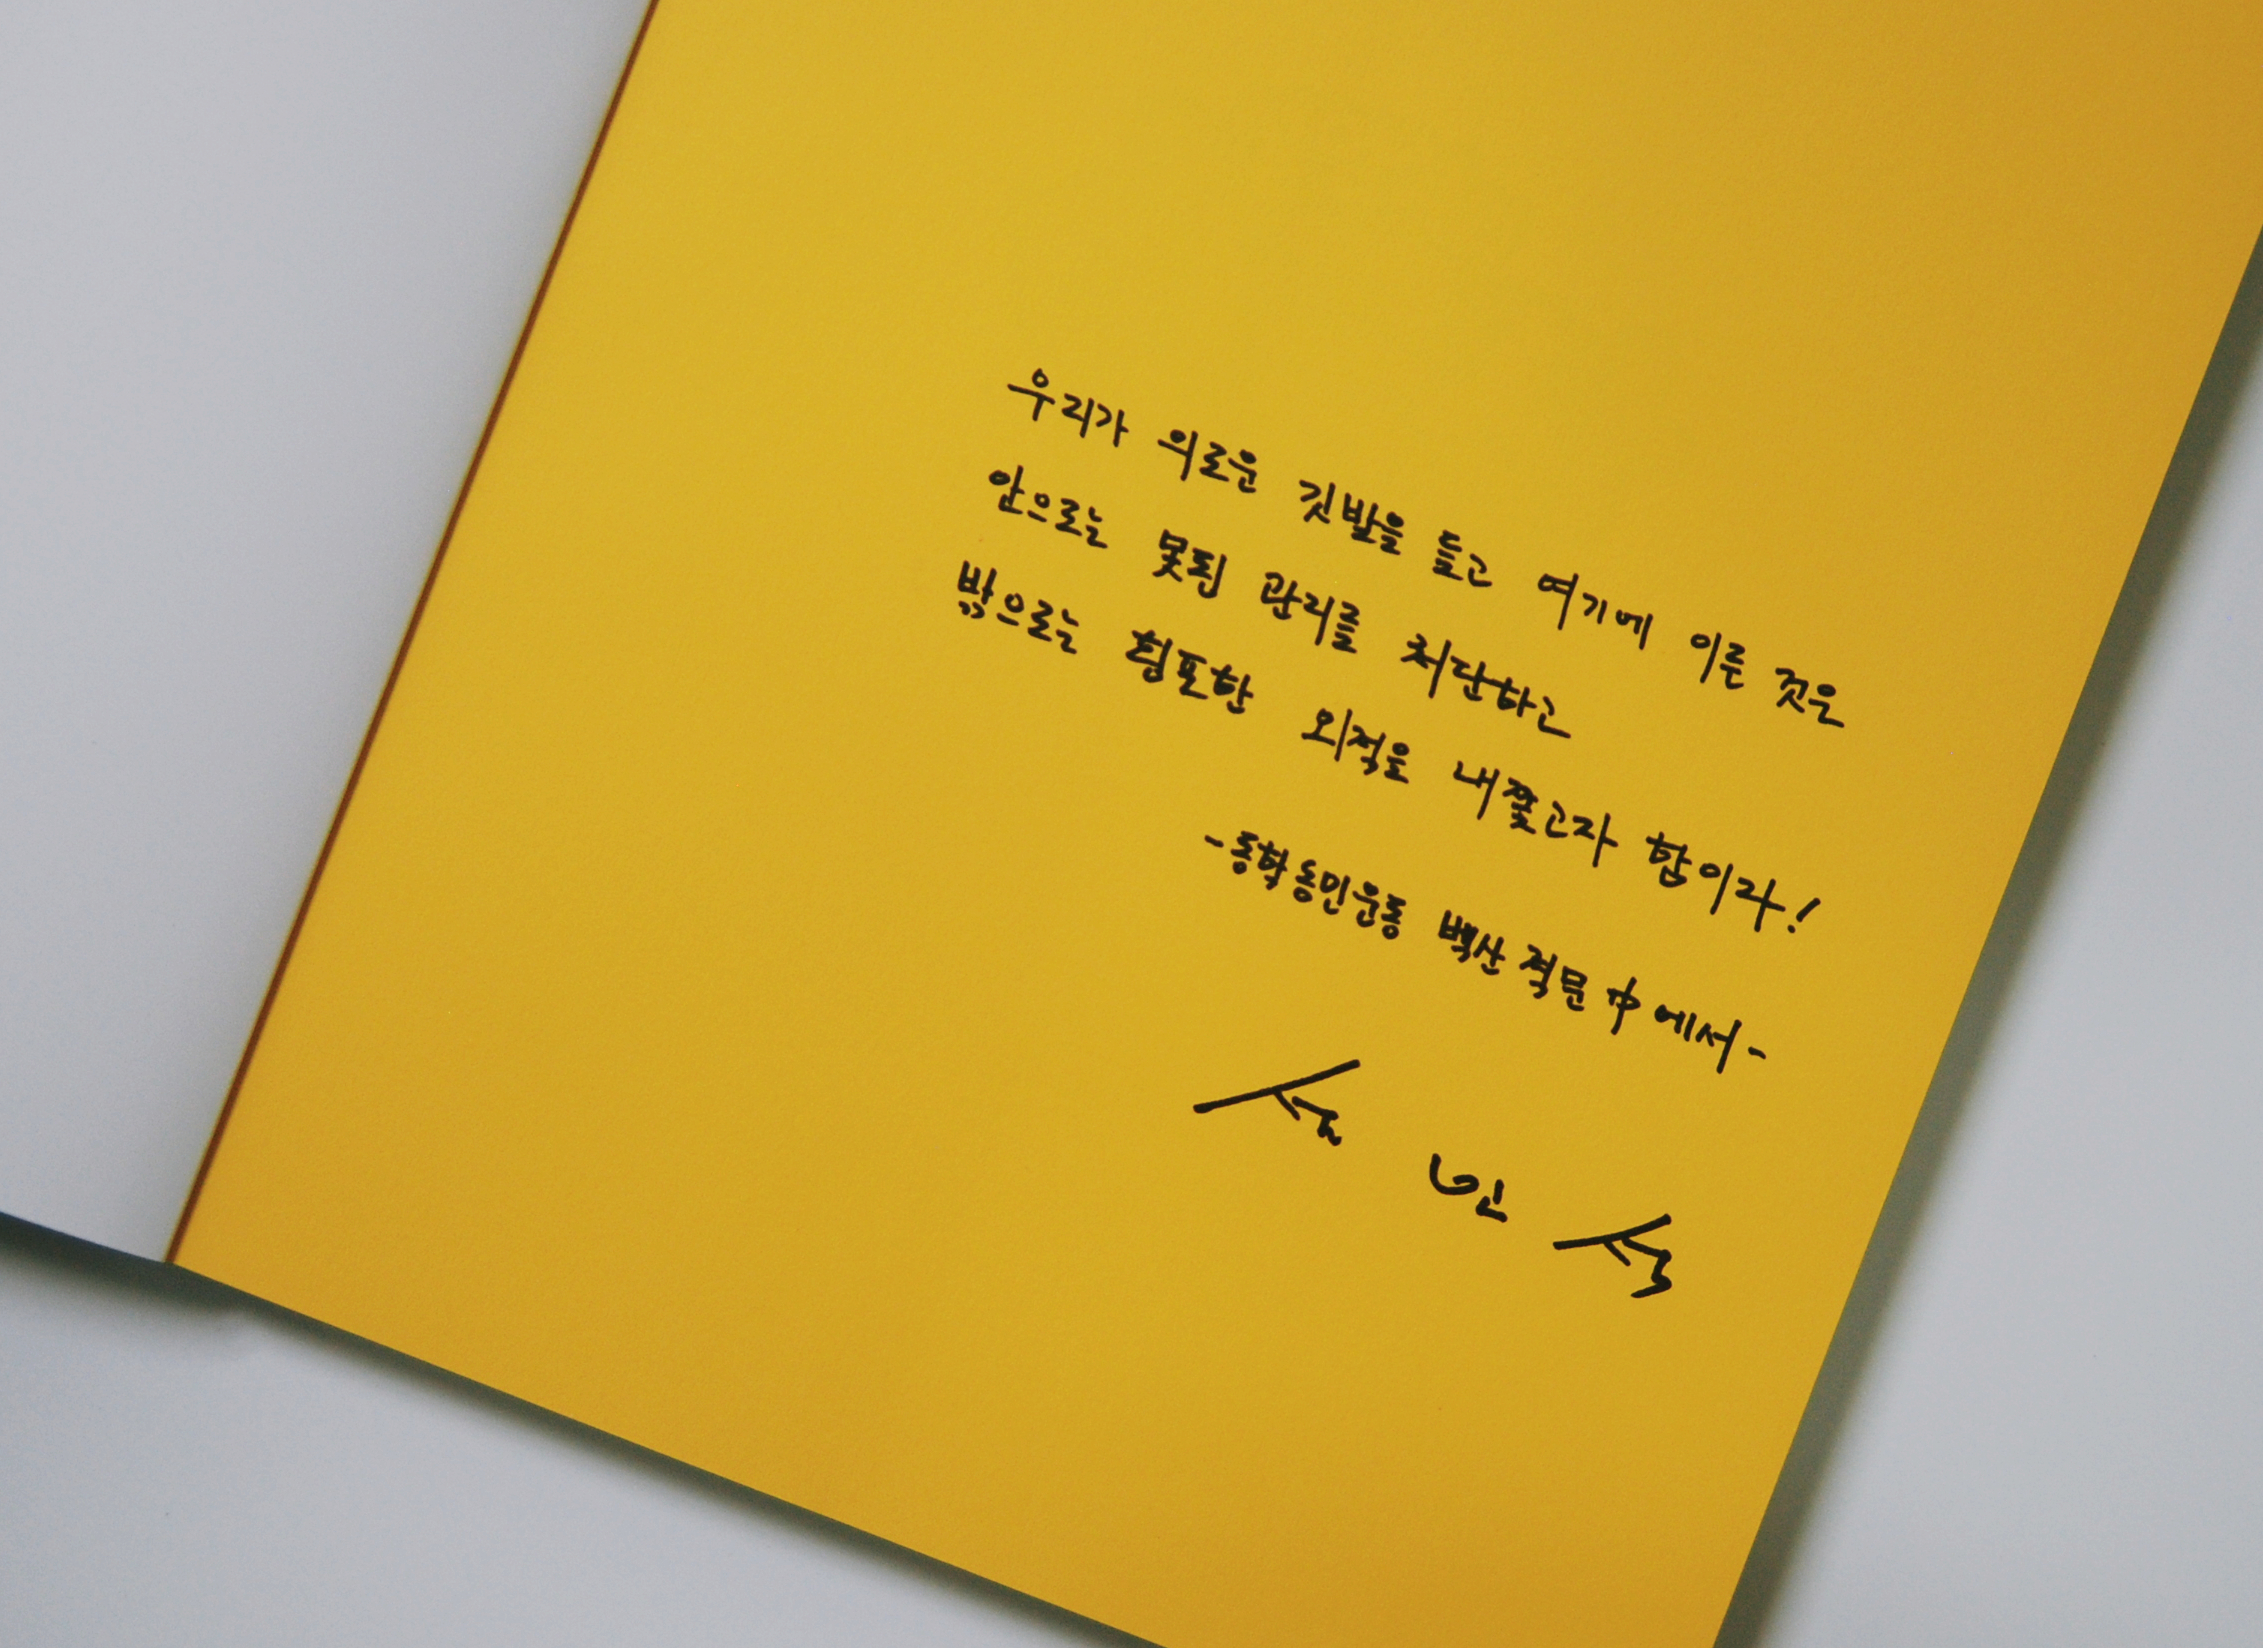 우리가 의로운 깃발을 들고 여기에 이른 것은
안으로는 못된 관리를 처단하고
밖으로는 횡포한 외적을 내쫓고자 함이라!
-동학농민운동 백산 격문 中에서-
설민석